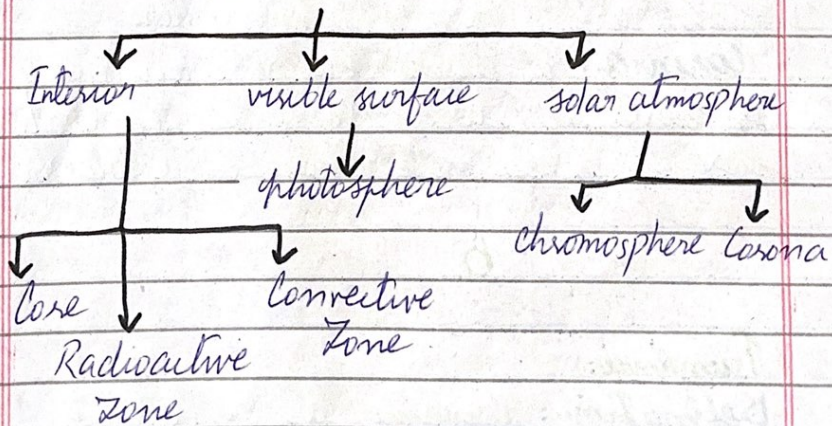 Interior visible surface solar atmosphere
photosphere
chromosphere Corona
Core Convective
Zone
Radioactive
Zone